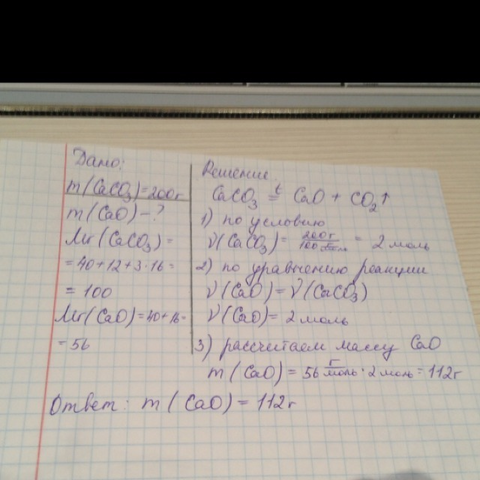 Дано:
m(CaCO₃)=200г
m(CaO)-?
Mr(CaCO₃)=
=40+12+3·16=
=100
Mr(CaO)=40+16=
=56
Решение
CaCO₃ t= CaO + CO₂↑
1) по условию
ν(CaCO₃)= 200г/100 г/моль = 2 моль
2) по уравнению реакции
ν(CaO)=ν(CaCO₃)
ν(CaO)= 2 моль
3) рассчитаем массу CaO
m(CaO)= 56 г/моль · 2 моль = 112г
Ответ: m(CaO)=112г